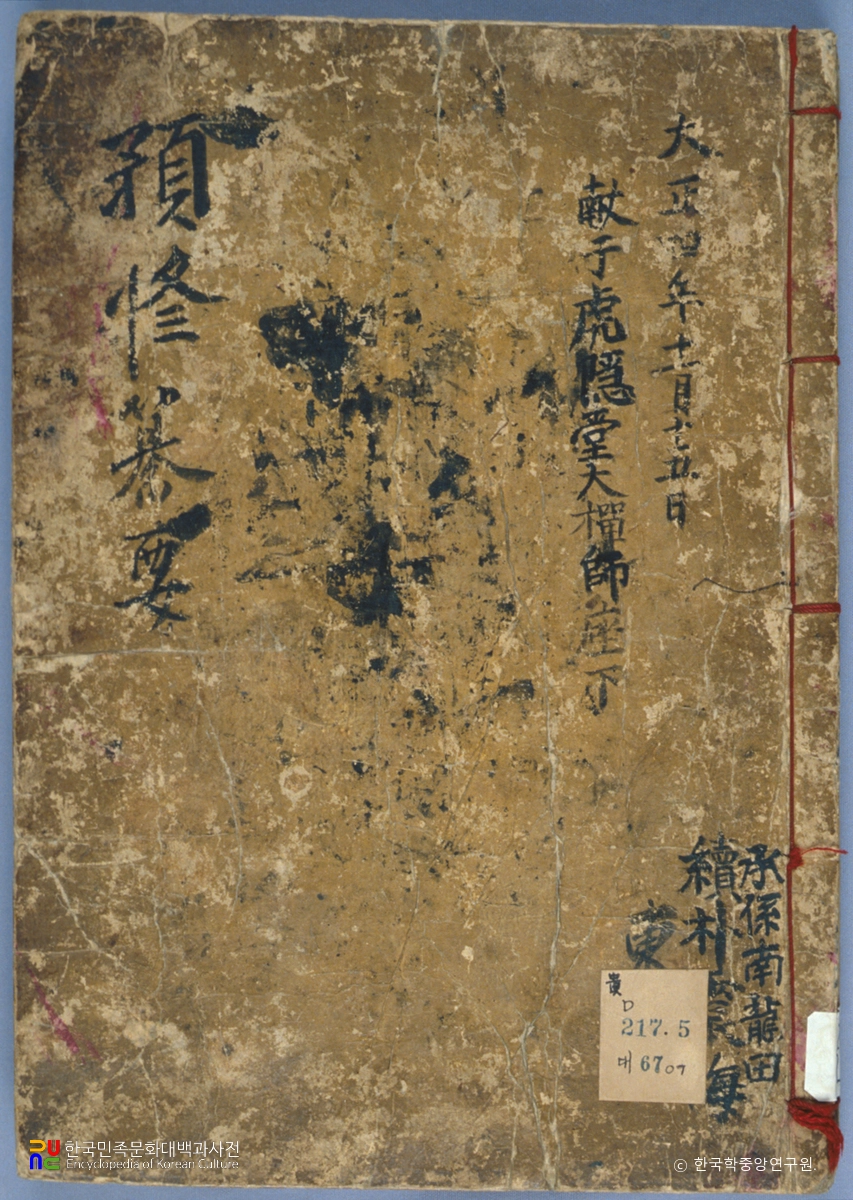 大正四年十二月十五日
献于虎隱堂大禪師座下
預修篡要
承係南龍田
續朴
東
貴
D
217.5
대 6707
한국민족문화대백과사전
Encyclopedia of Korean Culture
© 한국학중앙연구원.